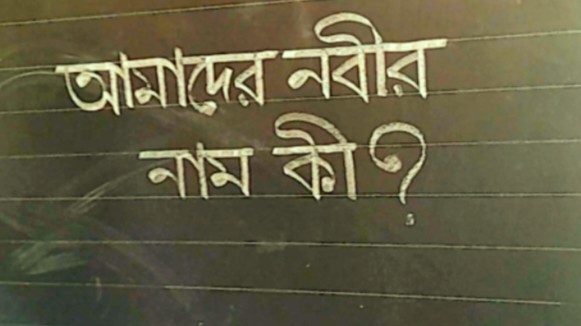 আমাদের নবীর
নাম কী?